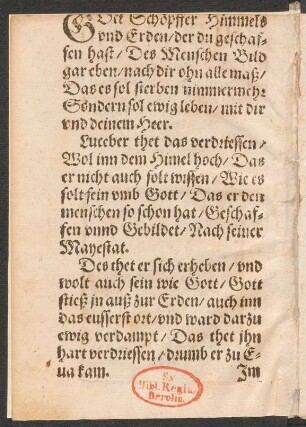 GOtt Schöpffer Himmels
vnd Erden/ der du geschaf-
fen hast/ Des Menschen Bild
gar eben/ nach dir ohn alle maß/
Das es sol sterben nimmermehr
Sondern sol ewig leben/ mit dir
vnd deinem Heer.
Luceber thet das verdriessen/
Wol inn dem Himel hoch/ Das
er nicht auch solt wissen/ Wie es
solt sein vmb Gott/ Das er den
menschen so schon hat/ Geschaf-
fen vnnd Gebildet/ Nach seiner
Mayestat.
Des thet er sich erheben/ vnd
wolt auch sein wie Gott/ Gott
stieß jn auß zur Erden/ auch inn
das eusserst ort/ vnd ward darzu
ewig verdampt/ Das thet jhn
hart verdriessen/ drumb er zu E-
ua kam. Im
Ex
Bibl. Regia
Berolin.